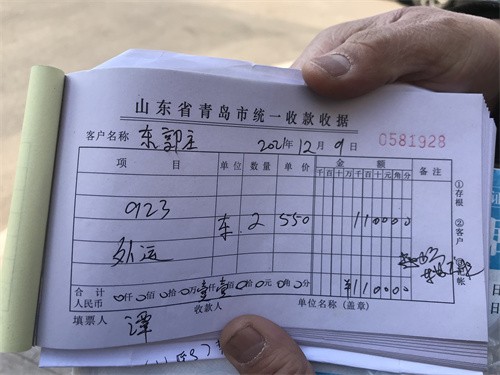 山东省青岛市统一收款收据
客户名称 东郭庄 2021年12月9日 0581928
项目 单位 数量 单价 金额 备注
千百十万千百十元角分
923 车 2 550 110000
外运
合计人民币 0仟0佰0拾0万壹仟壹佰0拾0元0角0分 ¥110000
收款人 单位名称(盖章)
填票人 谭
①存根 ②客户 记帐